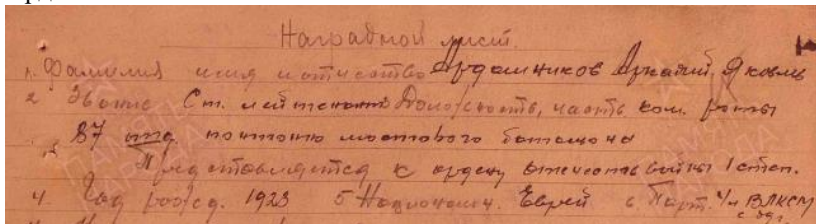 Наградной лист.
1. Фамилия имя и отчество Ардашников Аркадий Яковлев
2 Звание Ст. лейтенант Должность, часть ком. роты
87 отд понтонно мостового батальона
3 Представляется к ордену Отечеств войны 1 степ.
4. Год рожд. 1923 5 Национальн. Еврей 6. Парт. Чл ВЛКСМ
ПАМЯТЬ НАРОДА
ПАМЯТЬ НАРОДА